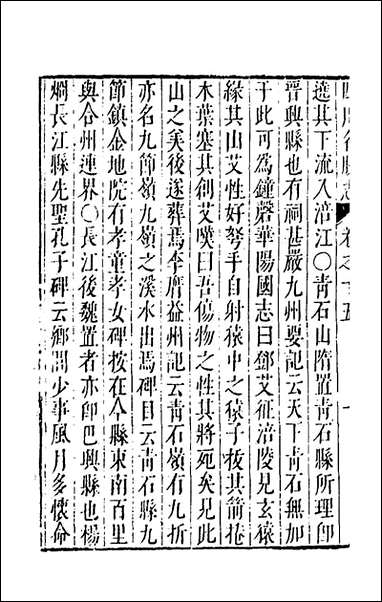 四川名勝志 卷之十五
遶其下流入涪江〇靑石山隋置靑石縣所理卽
晉興縣也有祠甚嚴九州要記云天下靑石無加
于此可爲鐘磬華陽國志曰鄧艾征涪陵見玄猿
緣其山艾性好弩手自射猿中之猿子拔其箭捲
木葉塞其創艾嘆曰吾傷物之性其將死矣見此
山之美後遂葬焉李膺益州記云靑石嶺有九折
亦名九節嶺九嶺之溪水出焉碑目云靑石縣九
節鎮金地院有孝童孝女碑按在今縣東南百里
與合州連界〇長江後魏置者亦卽巴興縣也楊
烱長江縣先聖孔子碑云鄉閭少事風月多懷命